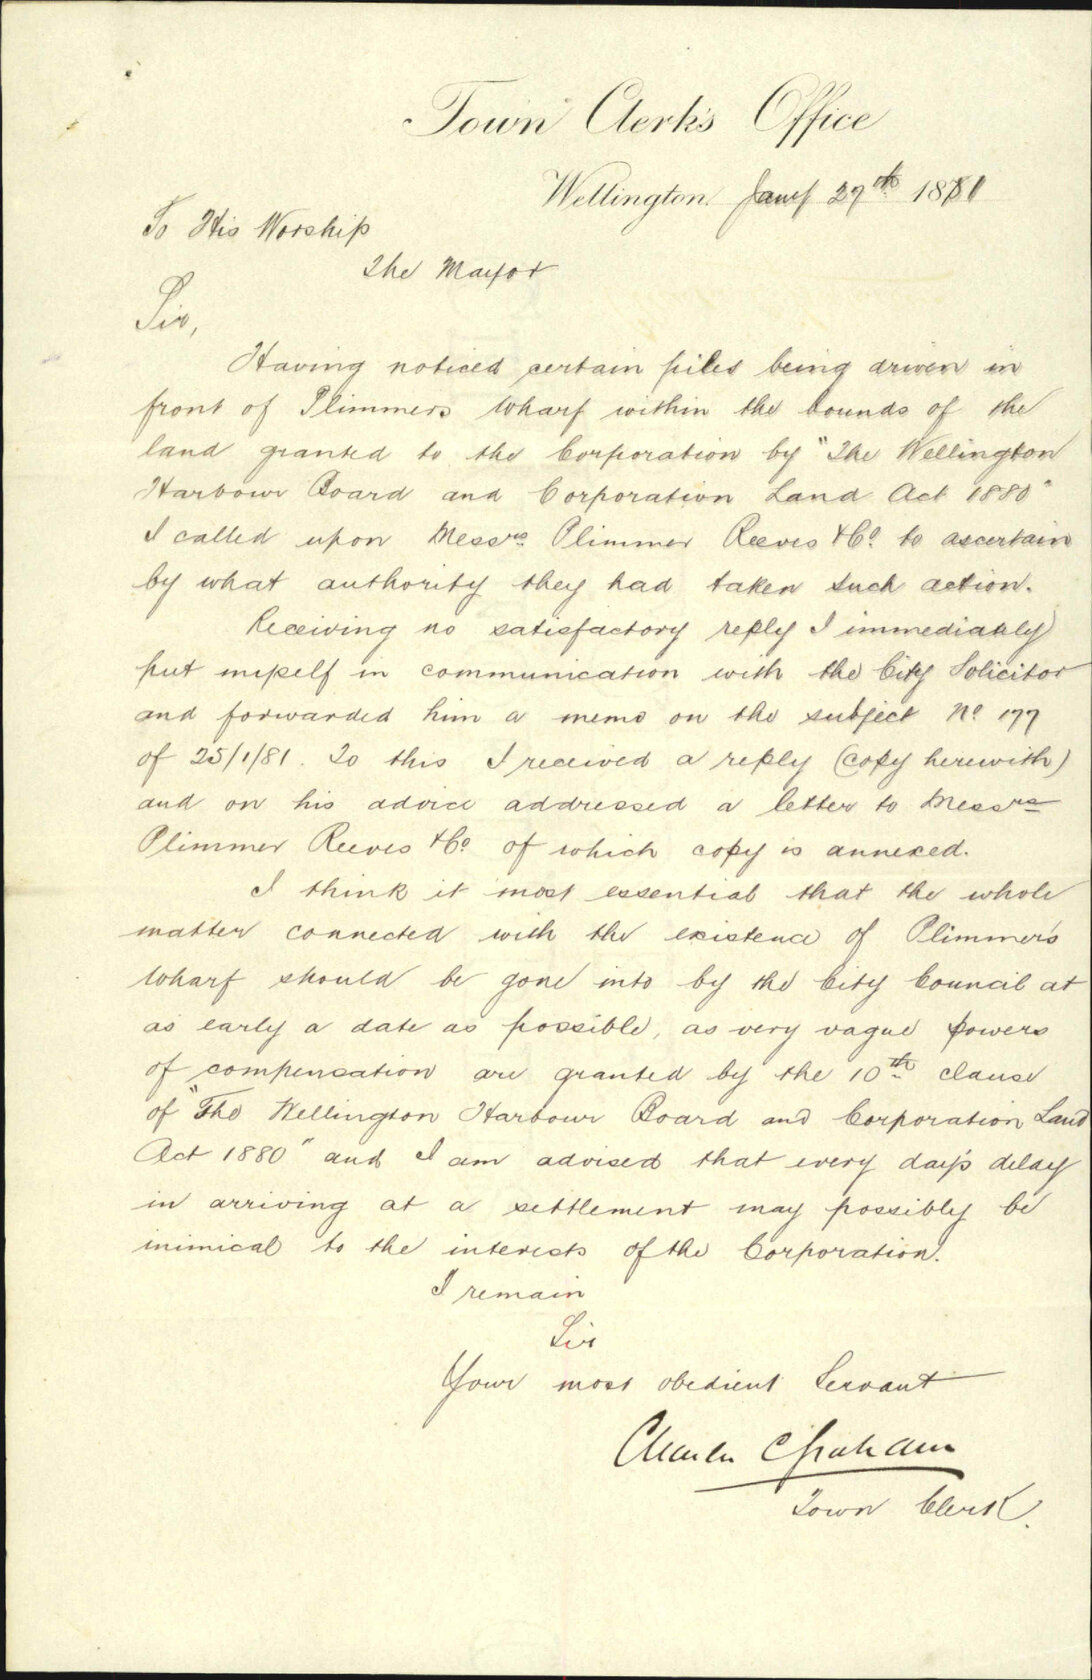 Town Clerk's Office
Wellington Jany 27th 1881
To His Worship
The Mayor
Sir,
Having noticed certain piles being driven in
front of Plimmers Wharf within the bounds of the
land granted to the Corporation by "The Wellington
Harbour Board and Corporation Land Act 1880"
I called upon Messrs Plimmer Reeves & Co. to ascertain
by what authority they had taken such action.
Receiving no satisfactory reply I immediately
put myself in communication with the City Solicitor
and forwarded him a memo on the subject No 177
of 25/1/81. To this I received a reply (copy herewith)
and on his advice addressed a letter to Messrs
Plimmer Reeves & Co of which copy is annexed.
I think it most essential that the whole
matter connected with the existence of Plimmer's
Wharf should be gone into by the City Council at
as early a date as possible, as very vague powers
of compensation are granted by the 10th clause
of "The Wellington Harbour Board and Corporation Land
Act 1880" and I am advised that every day's delay
in arriving at a settlement may possibly be
inimical to the interests of the Corporation.
I remain
Sir
Your most obedient Servant
Charles C Graham
Town Clerk.